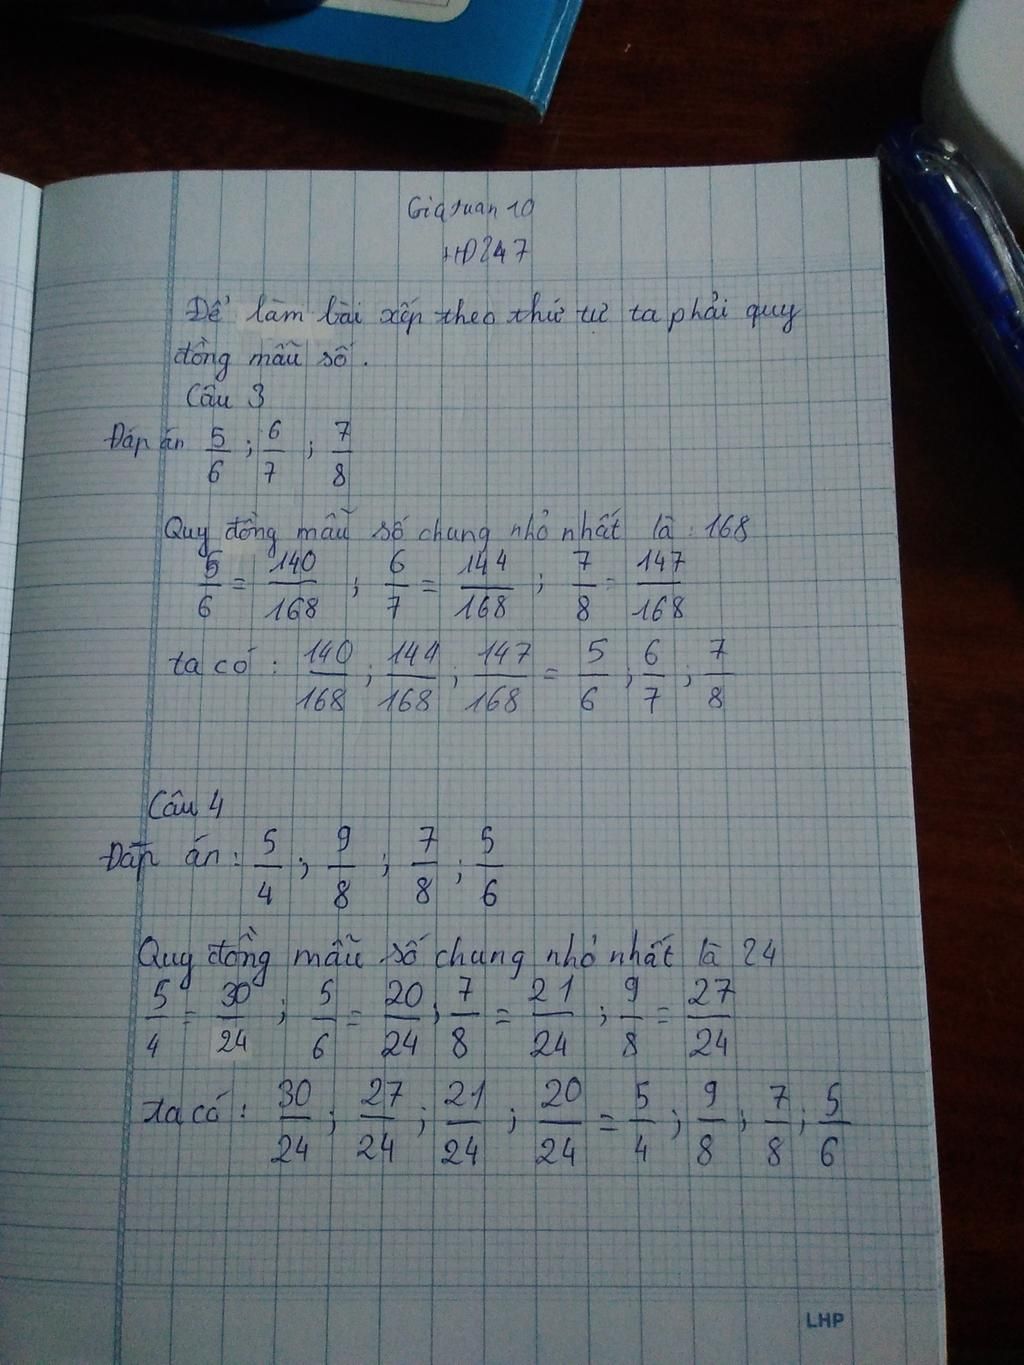 Giaruan 10
HD247
Để làm bài xếp theo thứ tự ta phải quy
đồng mẫu số.
Câu 3
Đáp án 5/6 ; 6/7 ; 7/8
Quy đồng mẫu số chung nhỏ nhất là : 168
5/6 = 140/168 ; 6/7 = 144/168 ; 7/8 = 147/168
ta có : 140/168 ; 144/168 ; 147/168 = 5/6 ; 6/7 ; 7/8
Câu 4
Đáp án : 5/4 ; 9/8 ; 7/8 ; 5/6
Quy đồng mẫu số chung nhỏ nhất là 24
5/4 = 30/24 ; 5/6 = 20/24 ; 7/8 = 21/24 ; 9/8 = 27/24
ta có : 30/24 ; 27/24 ; 21/24 ; 20/24 = 5/4 ; 9/8 ; 7/8 ; 5/6
LHP